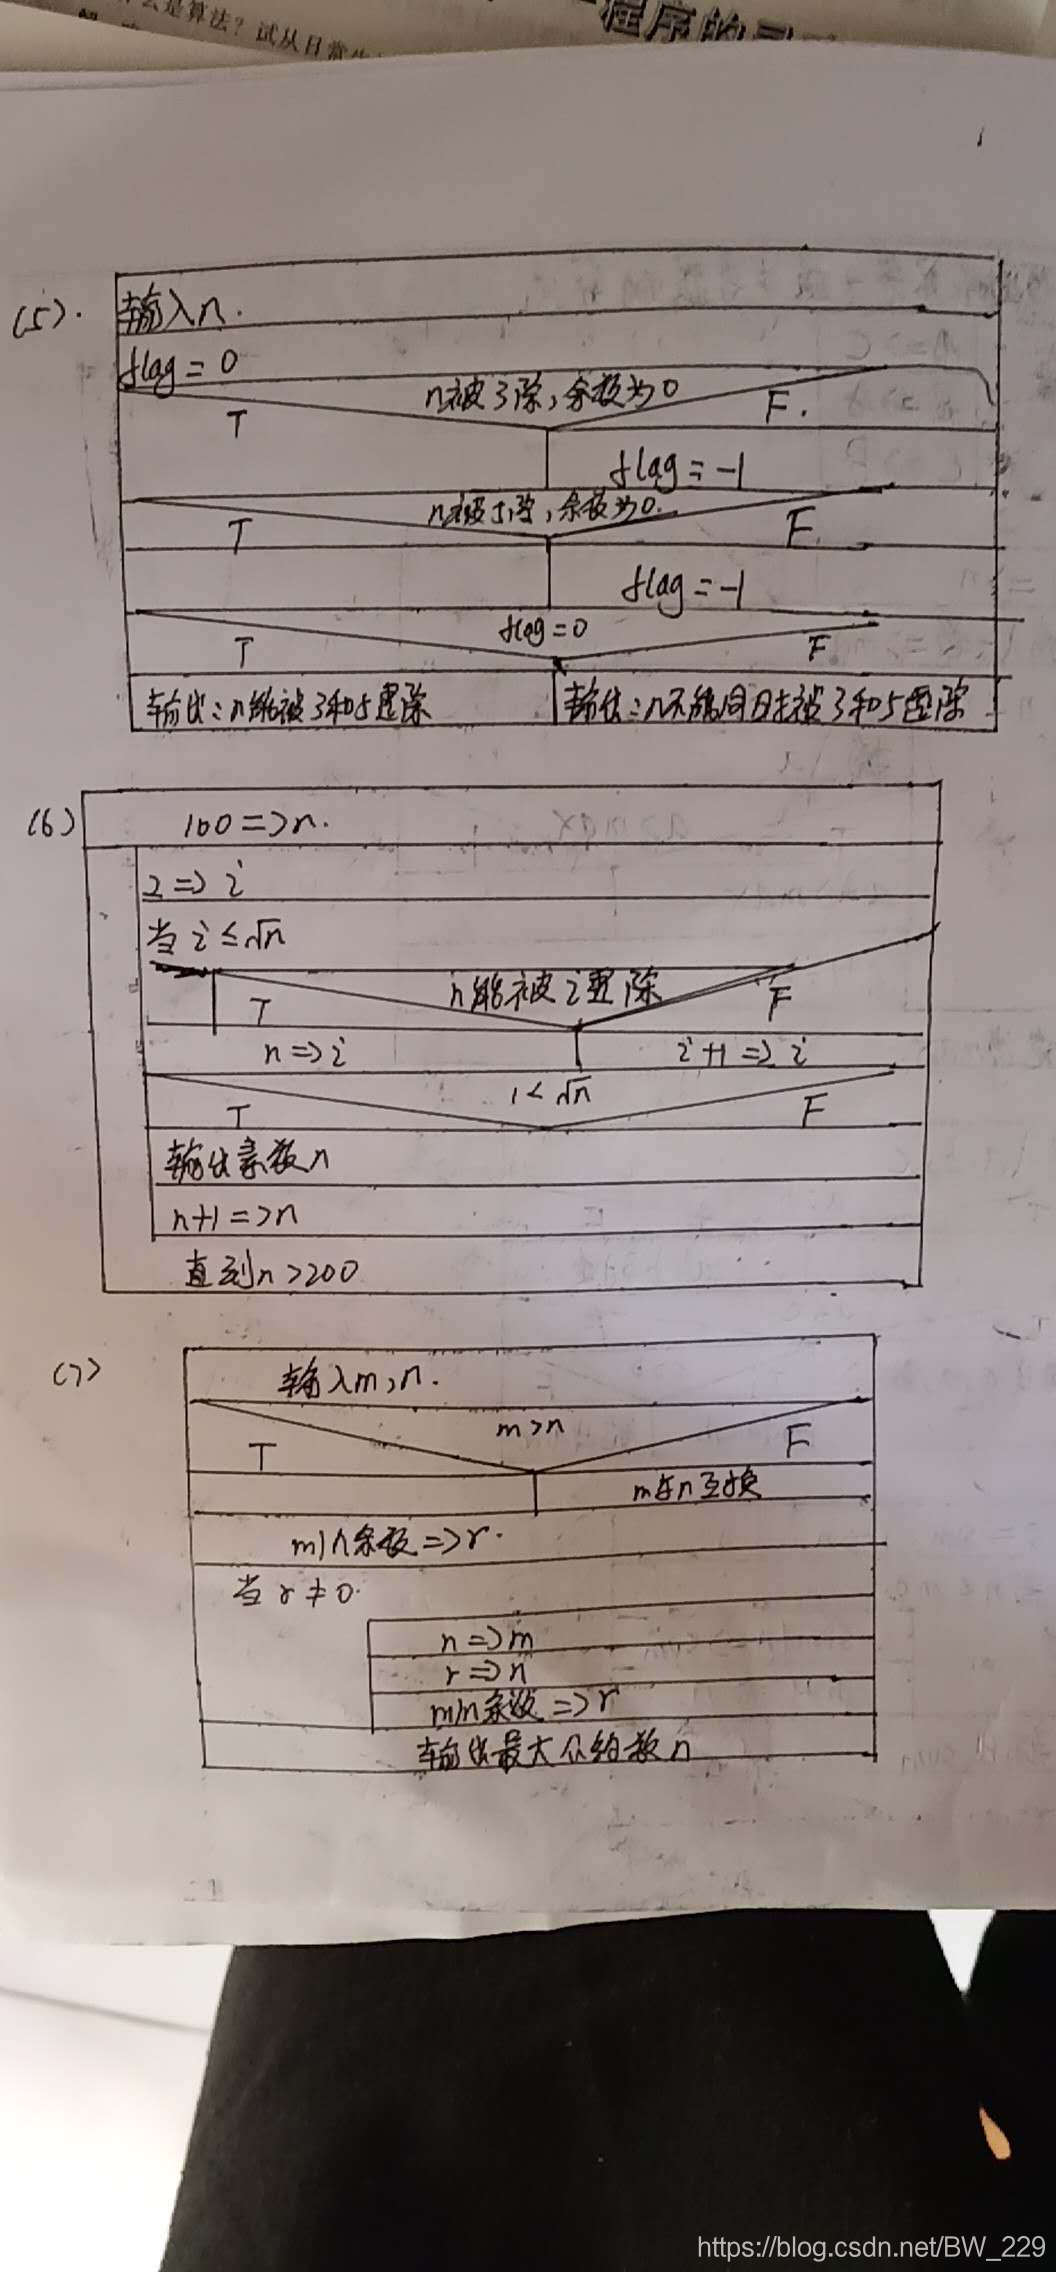 么是算法？试从日常
程序的灵
(5).
输入n.
flag = 0
n被3除,余数为0
T F.
flag = -1
n被5除,余数为0.
T F.
flag = -1
flag = 0
T F
输出:n能被3和5整除 输出:n不能同时被3和5整除
(6)
100 => n.
2 => i
当 i ≤ √n
n能被i整除
T F
n => i i+1 => i
i < √n
T F
输出素数n
n+1 => n
直到n>200
(7)
输入m,n.
m>n
T F
m与n互换
m/n余数 => r.
当 r ≠ 0.
n => m
r => n
m/n余数 => r
输出最大公约数n
https://blog.csdn.net/BW_229